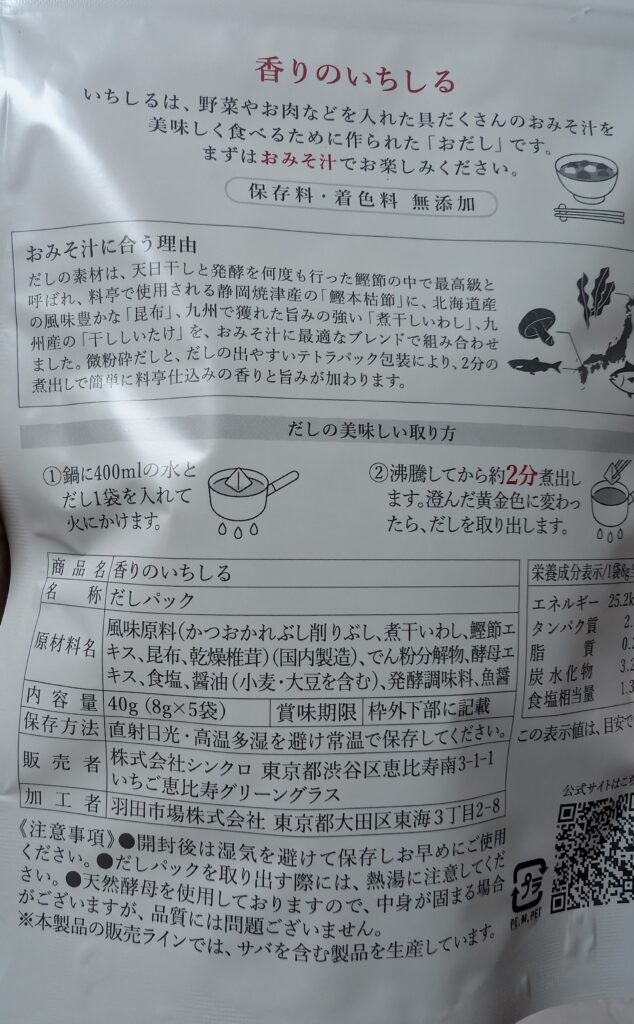 香りのいちしる
いちしるは、野菜やお肉などを入れた具だくさんのおみそ汁を
美味しく食べるために作られた「おだし」です。
まずはおみそ汁でお楽しみください。
保存料・着色料 無添加
おみそ汁に合う理由
だしの素材は、天日干しと発酵を何度も行った鰹節の中で最高級と
呼ばれ、料亭で使用される静岡焼津産の「鰹本枯節」に、北海道産
の風味豊かな「昆布」、九州で獲れた旨みの強い「煮干しいわし」、九
州産の「干ししいたけ」を、おみそ汁に最適なブレンドで組み合わせ
ました。微粉砕だしと、だしの出やすいテトラパック包装により、2分の
煮出しで簡単に料亭仕込みの香りと旨みが加わります。
だしの美味しい取り方
①鍋に400mlの水と
だし1袋を入れて
火にかけます。
②沸騰してから約2分煮出し
ます。澄んだ黄金色に変わっ
たら、だしを取り出します。
商品名 香りのいちしる
名称 だしパック
原材料名 風味原料(かつおかれぶし削りぶし、煮干いわし、鰹節エ
キス、昆布、乾燥椎茸)(国内製造)、でん粉分解物、酵母エ
キス、食塩、醤油(小麦・大豆を含む)、発酵調味料、魚醤
内容量 40g(8g×5袋) 賞味期限 枠外下部に記載
保存方法 直射日光・高温多湿を避け常温で保存してください。
販売者 株式会社シンクロ 東京都渋谷区恵比寿南3-1-1
いちご恵比寿グリーングラス
加工者 羽田市場株式会社 東京都大田区東海3丁目2-8
栄養成分表示/1袋8g
エネルギー 25.2k
タンパク質 2.
脂質 0.2
炭水化物 3.2
食塩相当量 1.3
この表示値は、目安で
公式サイトはこち
《注意事項》●開封後は湿気を避けて保存しお早めにご使用
ください。●だしパックを取り出す際には、熱湯に注意してくだ
さい。●天然酵母を使用しておりますので、中身が固まる場合
がございますが、品質には問題ございません。
※本製品の販売ラインでは、サバを含む製品を生産しています。
プラ
PE,M,PET